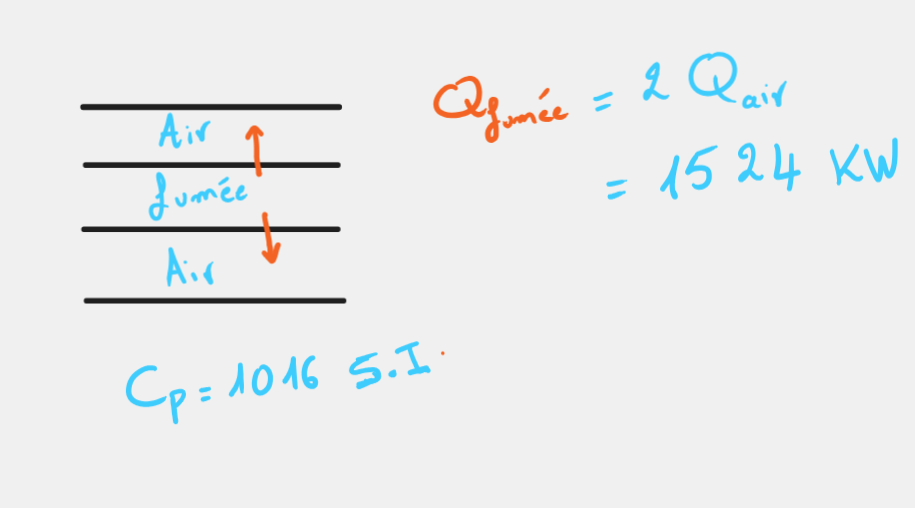 Air
fumée
Air
Q fumée = 2 Q air
= 1524 KW
Cp = 1016 S.I.